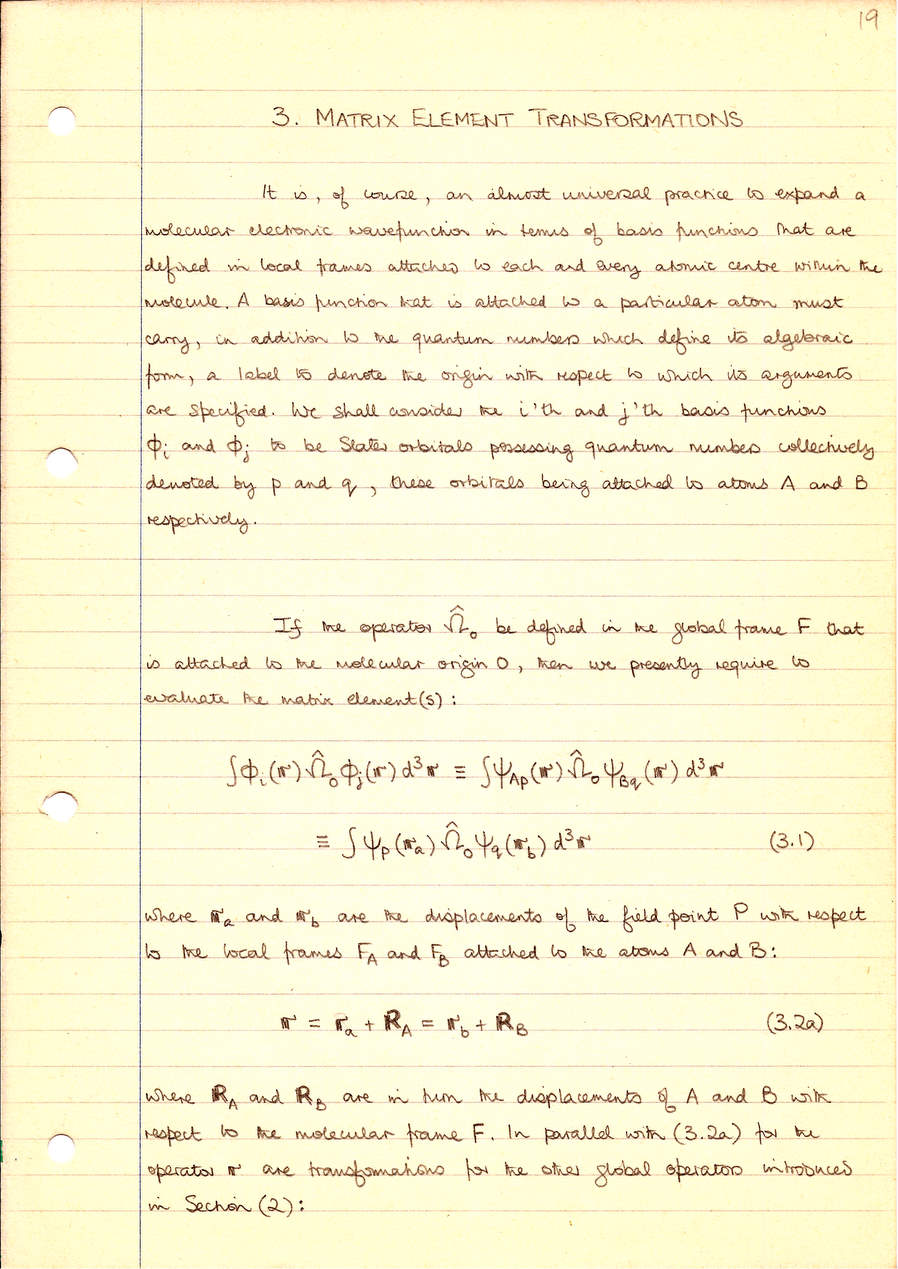 19
3. MATRIX ELEMENT TRANSFORMATIONS
It is, of course, an almost universal practice to expand a
molecular electronic wavefunction in terms of basis functions that are
defined in local frames attached to each and every atomic centre within the
molecule. A basis function that is attached to a particular atom must
carry, in addition to the quantum numbers which define its algebraic
form, a label to denote the origin with respect to which its arguments
are specified. We shall consider the i'th and j'th basis functions
ϕᵢ and ϕⱼ to be Slater orbitals possessing quantum numbers collectively
denoted by p and q, these orbitals being attached to atoms A and B
respectively.
If the operator Ω̂₀ be defined in the global frame F that
is attached to the molecular origin O, then we presently require to
evaluate the matrix element(s):
∫ϕᵢ(𝕣) Ω̂₀ ϕⱼ(𝕣) d³𝕣 ≡ ∫ψ_Ap(𝕣) Ω̂₀ ψ_Bq(𝕣) d³𝕣
≡ ∫ψ_p(𝕣_a) Ω̂₀ ψ_q(𝕣_b) d³𝕣 (3.1)
where 𝕣_a and 𝕣_b are the displacements of the field point P with respect
to the local frames F_A and F_B attached to the atoms A and B:
𝕣 = 𝕣_a + ℝ_A = 𝕣_b + ℝ_B (3.2a)
where ℝ_A and ℝ_B are in turn the displacements of A and B with
respect to the molecular frame F. In parallel with (3.2a) for the
operator 𝕣 are transformations for the other global operators introduced
in Section (2):